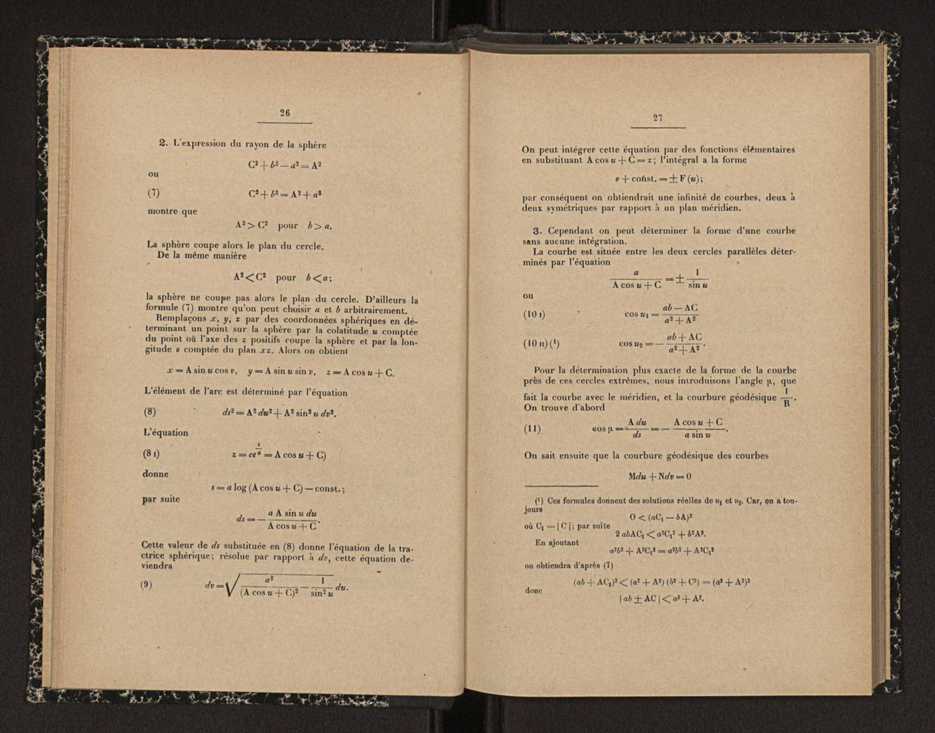 26
2. L'expression du rayon de la sphère
C² + b² — a² = A²
ou
(7) C² + b² = A² + a²
montre que
A² > C² pour b > a.
La sphère coupe alors le plan du cercle.
De la même manière
A² < C² pour b < a;
la sphère ne coupe pas alors le plan du cercle. D'ailleurs la
formule (7) montre qu'on peut choisir a et b arbitrairement.
Remplaçons x, y, z par des coordonnées sphériques en dé-
terminant un point sur la sphère par la colatitude u comptée
du point où l'axe des z positifs coupe la sphère et par la lon-
gitude v comptée du plan xz. Alors on obtient
x = A sin u cos v, y = A sin u sin v, z = A cos u + C.
L'élément de l'arc est déterminé par l'équation
(8) ds² = A² du² + A² sin² u dv².
L'équation
(8 I) z = ce^(s/a) = A cos u + C)
donne
s = a log (A cos u + C) — const.;
par suite
ds = — a A sin u du / A cos u + C .
Cette valeur de ds substituée en (8) donne l'équation de la tra-
ctrice sphérique; résolue par rapport à dv, cette équation de-
viendra
(9) dv = √ a² / (A cos u + C)² — 1 / sin² u du.
27
On peut intégrer cette équation par des fonctions élémentaires
en substituant A cos u + C = z; l'intégral a la forme
v + const. = ± F (u);
par conséquent on obtiendrait une infinité de courbes, deux à
deux symétriques par rapport à un plan méridien.
3. Cependant on peut déterminer la forme d'une courbe
sans aucune intégration.
La courbe est située entre les deux cercles parallèles déter-
minés par l'équation
a / A cos u + C = ± 1 / sin u
ou
(10 I) cos u₁ = ab — AC / a² + A²
(10 II) (¹) cos u₂ = — ab + AC / a² + A² .
Pour la détermination plus exacte de la forme de la courbe
près de ces cercles extrêmes, nous introduisons l'angle μ, que
fait la courbe avec le méridien, et la courbure géodésique 1 / R .
On trouve d'abord
(11) cos μ = A du / ds = — A cos u + C / a sin u .
On sait ensuite que la courbure géodésique des courbes
Mdu + Ndv = 0
(¹) Ces formules donnent des solutions réelles de u₁ et u₂. Car, on a tou-
jours
O < (aC₁ — bA)²
où C₁ = | C |; par suite
2 abAC₁ < a²C₁² + b²A².
En ajoutant
a²b² + A²C₁² = a²b² + A²C₁²
on obtiendra d'après (7)
(ab + AC₁)² < (a² + A²) (b² + C²) = (a² + A²)²
donc
| ab ± AC | < a² + A².